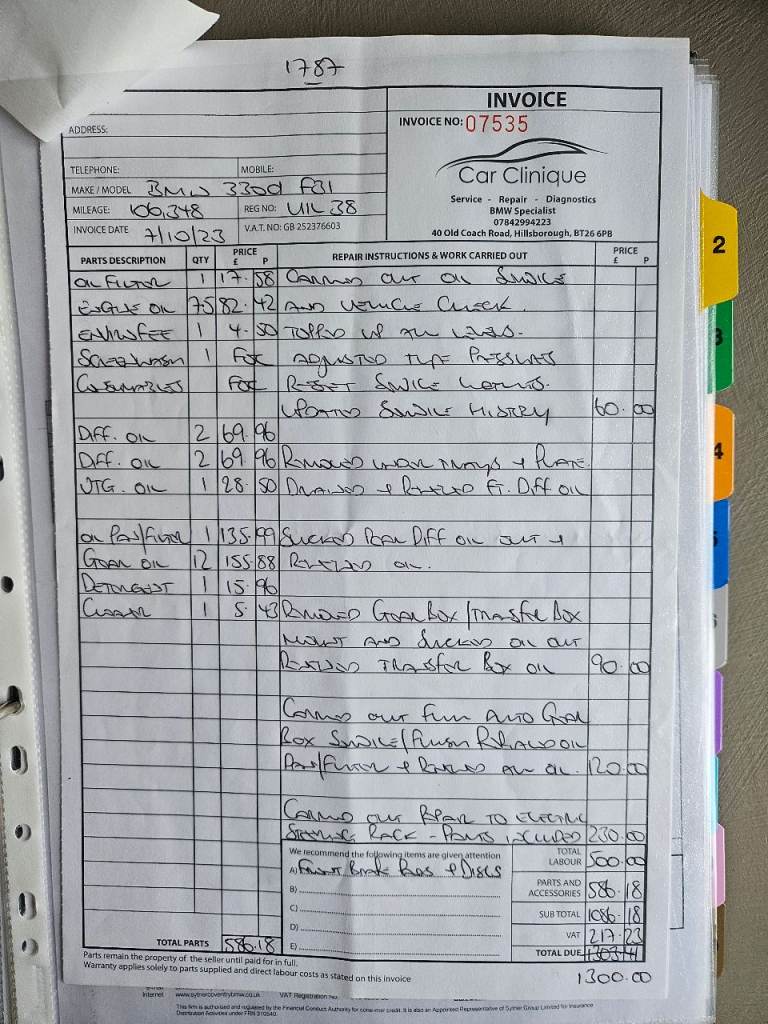 1787
INVOICE
ADDRESS:
INVOICE NO: 07535
Car Clinique
TELEPHONE: MOBILE:
MAKE / MODEL BMW 330d F31
Service - Repair - Diagnostics
BMW Specialist
MILEAGE: 106,348 REG NO: UIL 38
07842994223
INVOICE DATE 7/10/23 V.A.T. NO: GB 252376603
40 Old Coach Road, Hillsborough, BT26 6PB
PARTS DESCRIPTION QTY PRICE £ P REPAIR INSTRUCTIONS & WORK CARRIED OUT PRICE £ P
OIL FILTER 1 17.58 CARRIED OUT OIL SERVICE
ENGINE OIL 75 82.42 AND VEHICLE CHECK.
ENVIRO FEE 1 4.50 TOPPED UP ALL LEVELS.
SCREENWASH 1 FOC ADJUSTED TYRE PRESSURES
CONSUMABLES FOC RESET SERVICE LIGHTS.
UPDATED SERVICE HISTORY 60.00
DIFF. OIL 2 69.96
DIFF. OIL 2 69.96 REMOVED UNDER TRAYS + PLATE
VTG. OIL 1 28.50 DRAINED + REFILLED FT. DIFF OIL
OIL PAN/FILTER 1 135.99 SUCKED REAR DIFF OIL OUT +
GEAR OIL 12 155.88 REFILLED OIL.
DETERGENT 1 15.96
CLEANER 1 5.43 REMOVED GEARBOX/TRANSFER BOX
MOUNT AND SUCKED OIL OUT
REFILLED TRANSFER BOX OIL 90.00
CARRIED OUT FULL AUTO GEAR
BOX SERVICE/FLUSH REPLACED OIL
PAN/FILTER + REFILLED OIL. 120.00
CARRIED OUT REPAIR TO ELECTRIC
STEERING RACK - PARTS INCLUDED 230.00
We recommend the following items are given attention
TOTAL LABOUR 500.00
A) FRONT BRAKE PADS + DISCS
B)
PARTS AND ACCESSORIES 586.18
C)
SUB TOTAL 1086.18
D)
VAT 217.23
E)
TOTAL PARTS 586.18
TOTAL DUE 1303.41
Parts remain the property of the seller until paid for in full.
Warranty applies solely to parts supplied and direct labour costs as stated on this invoice
1300.00
Internet www.sytnercoventrybmw.co.uk VAT Registration No
This firm is authorised and regulated by the Financial Conduct Authority for consumer credit. It is also an Appointed Representative of Sytner Group Limited for Insurance
Distribution Activities under FRN 310540.
2
3
4
5